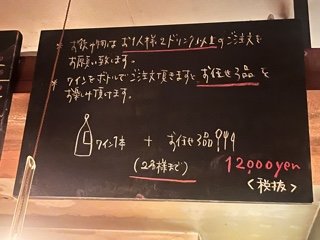 * お飲み物はお1人様2ドリンク以上のご注文を
お願い致します。
* ワインをボトルでご注文頂きますと お任せ3品を
お楽しみ頂けます。
ワイン1本 + お任せ3品
(2名様まで)
12,000yen
<税抜>